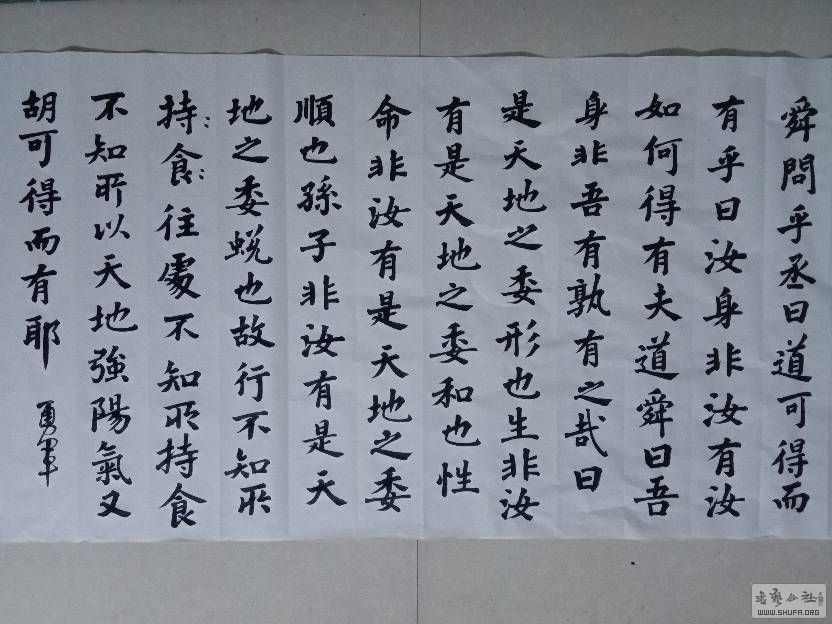 舜問乎丞曰道可得而
有乎曰汝身非汝有汝
如何得有夫道舜曰吾
身非吾有孰有之哉曰
是天地之委形也生非汝
有是天地之委和也性
命非汝有是天地之委
順也孫子非汝有是天
地之委蛻也故行不知所
持食往處不知所持食
不知所以天地強陽氣又
胡可得而有耶
勇軍
书艺公社
WWW.SHUFA.ORG